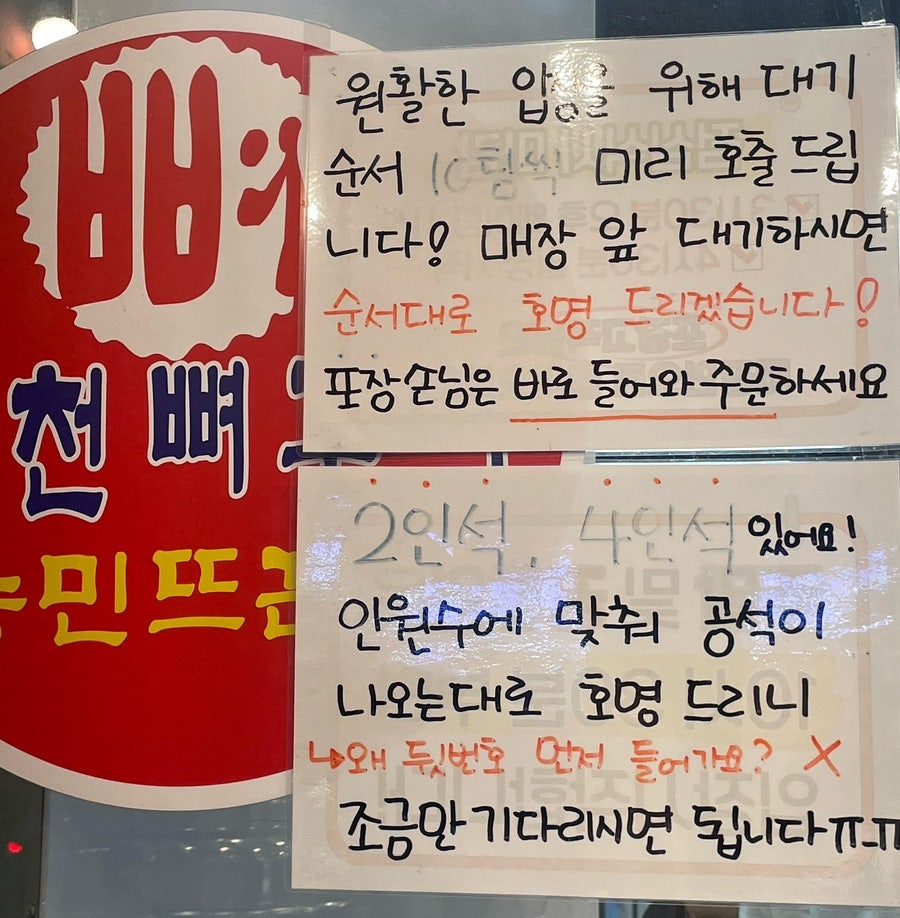 원활한 입장을 위해 대기
순서 10팀씩 미리 호출 드립
니다! 매장 앞 대기하시면
순서대로 호명 드리겠습니다!
포장손님은 바로 들어와 주문하세요
2인석, 4인석 있어요!
인원수에 맞춰 공석이
나오는대로 호명 드리니
↳왜 뒷번호 먼저 들어가요? X
조금만 기다리시면 됩니다ㅠ_ㅠ
뼈
천 뼈
민뜨